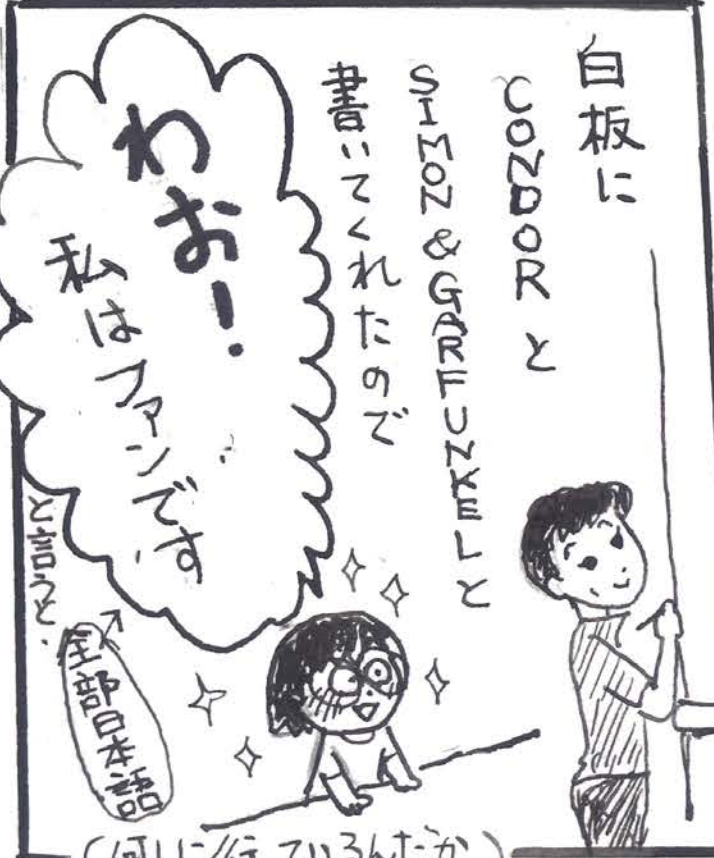 白板に
CONDORと
SIMON & GARFUNKELと
書いてくれたので
わお!
私はファンです
と言うと.
全部日本語
(何しに行っているんだか)